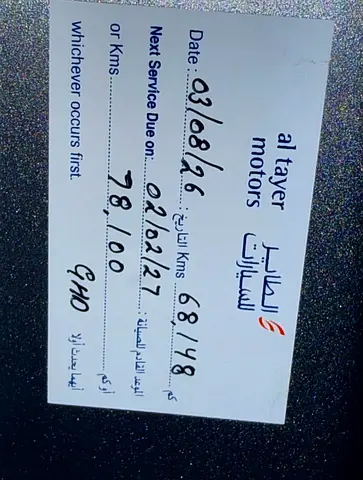 al tayer motors الطاير للسيارات
Date: 03/08/26 التاريخ: Kms 68,148 كم
Next Service Due on: 02/02/27 الموعد القادم للصيانة:
or Kms 78,100 أو كم
whichever occurs first. GHO أيهما يحدث أولا